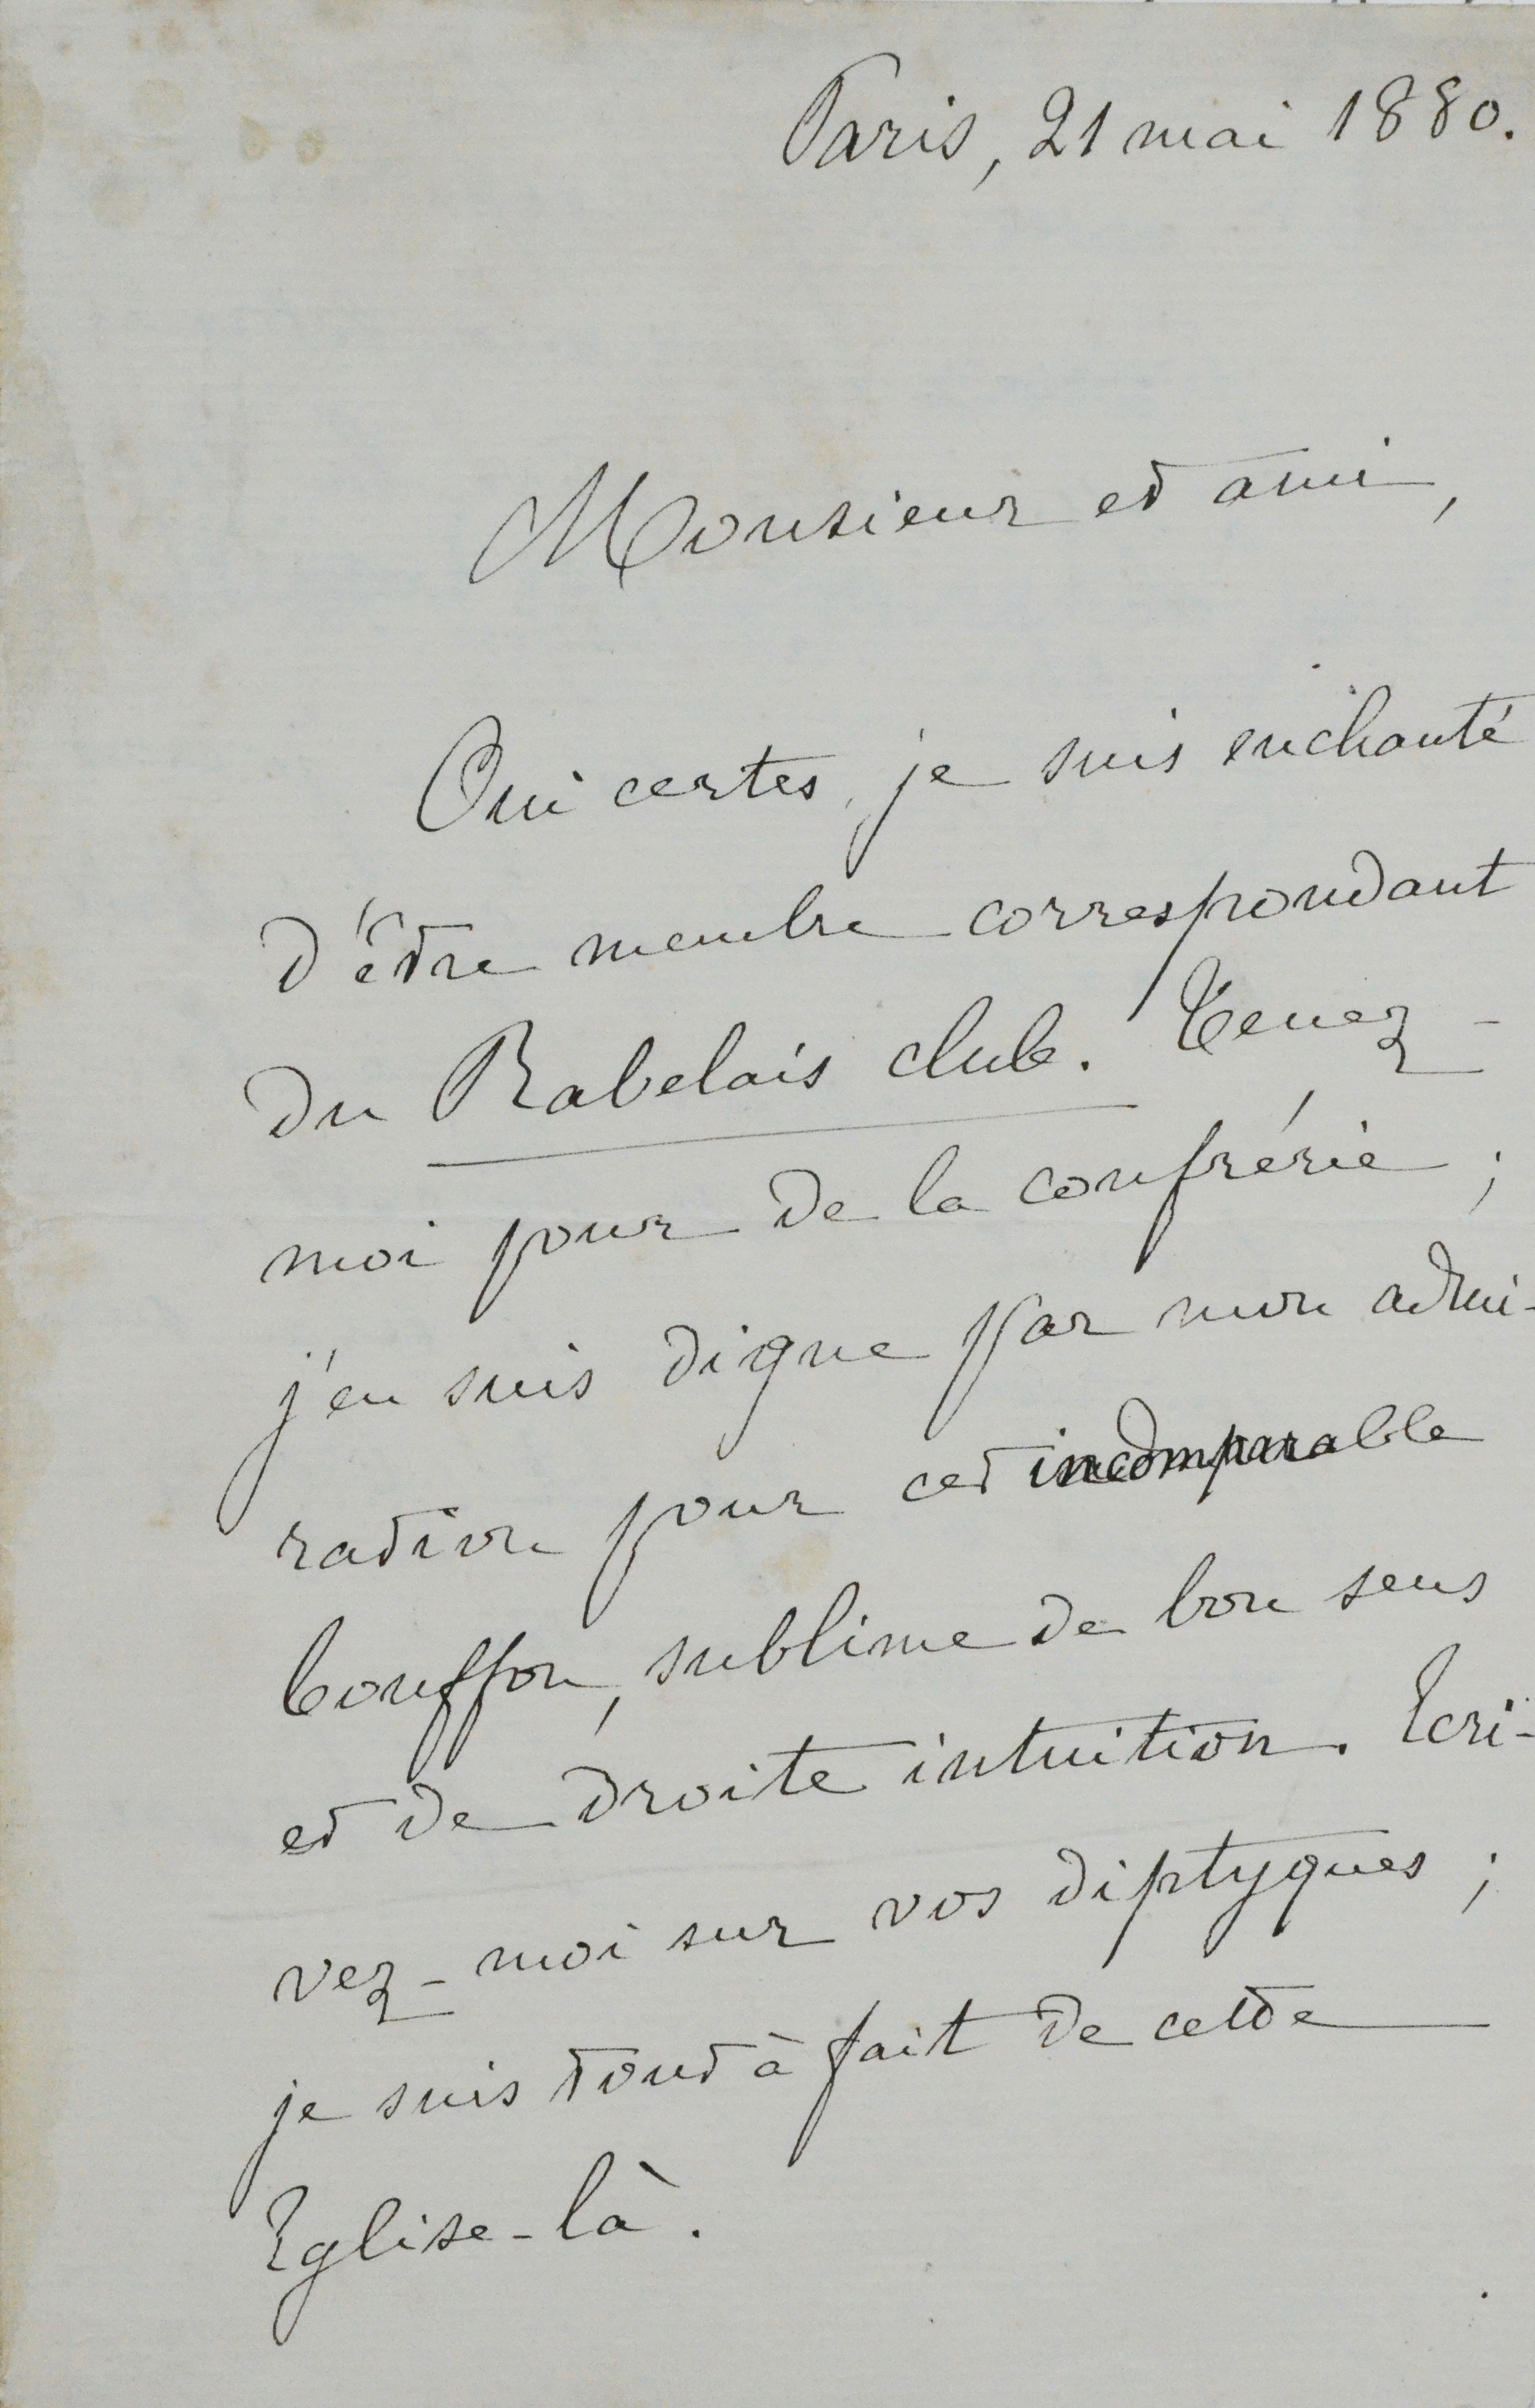 Paris, 21 mai 1880.
Monsieur et ami,
Oui certes, je suis enchanté
d'être membre correspondant
du Rabelais club. Tenez-
moi pour de la confrérie ;
j'en suis digne par mon admi-
ration pour cet incomparable
bouffon, sublime de bon sens
et de droite intuition. Ecri-
vez-moi sur vos diptyques ;
je suis tout à fait de cette
Eglise-là.